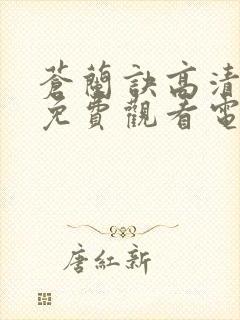 蒼蘭訣高清
免費觀看電
唐紅新